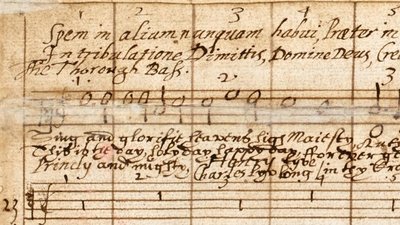 1 2 3
Spem in alium nunquam habui, Præter in
In tribulatione, Dimittis, Domine Deus, Cre
the Thorough Bass.
1 2 3
Sing and glorifie heavens high Maiesty, Aut
This is the day, holy day, happy day, for ever ge
Princly and mighty, Henry
Charles lyve long in thy Tro
1 2 3
23